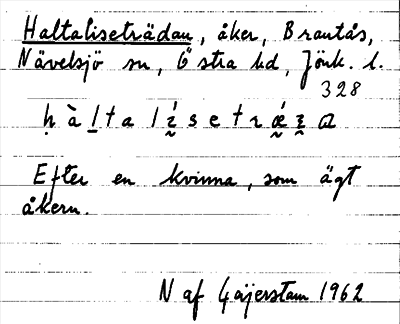 Haltaliseträdan, åker, Brantås,
Nävelsjö sn, Östra hd, Jönk. l.
328
Efter en kvinna, som ägt
åkern.
N af Geijerstam 1962